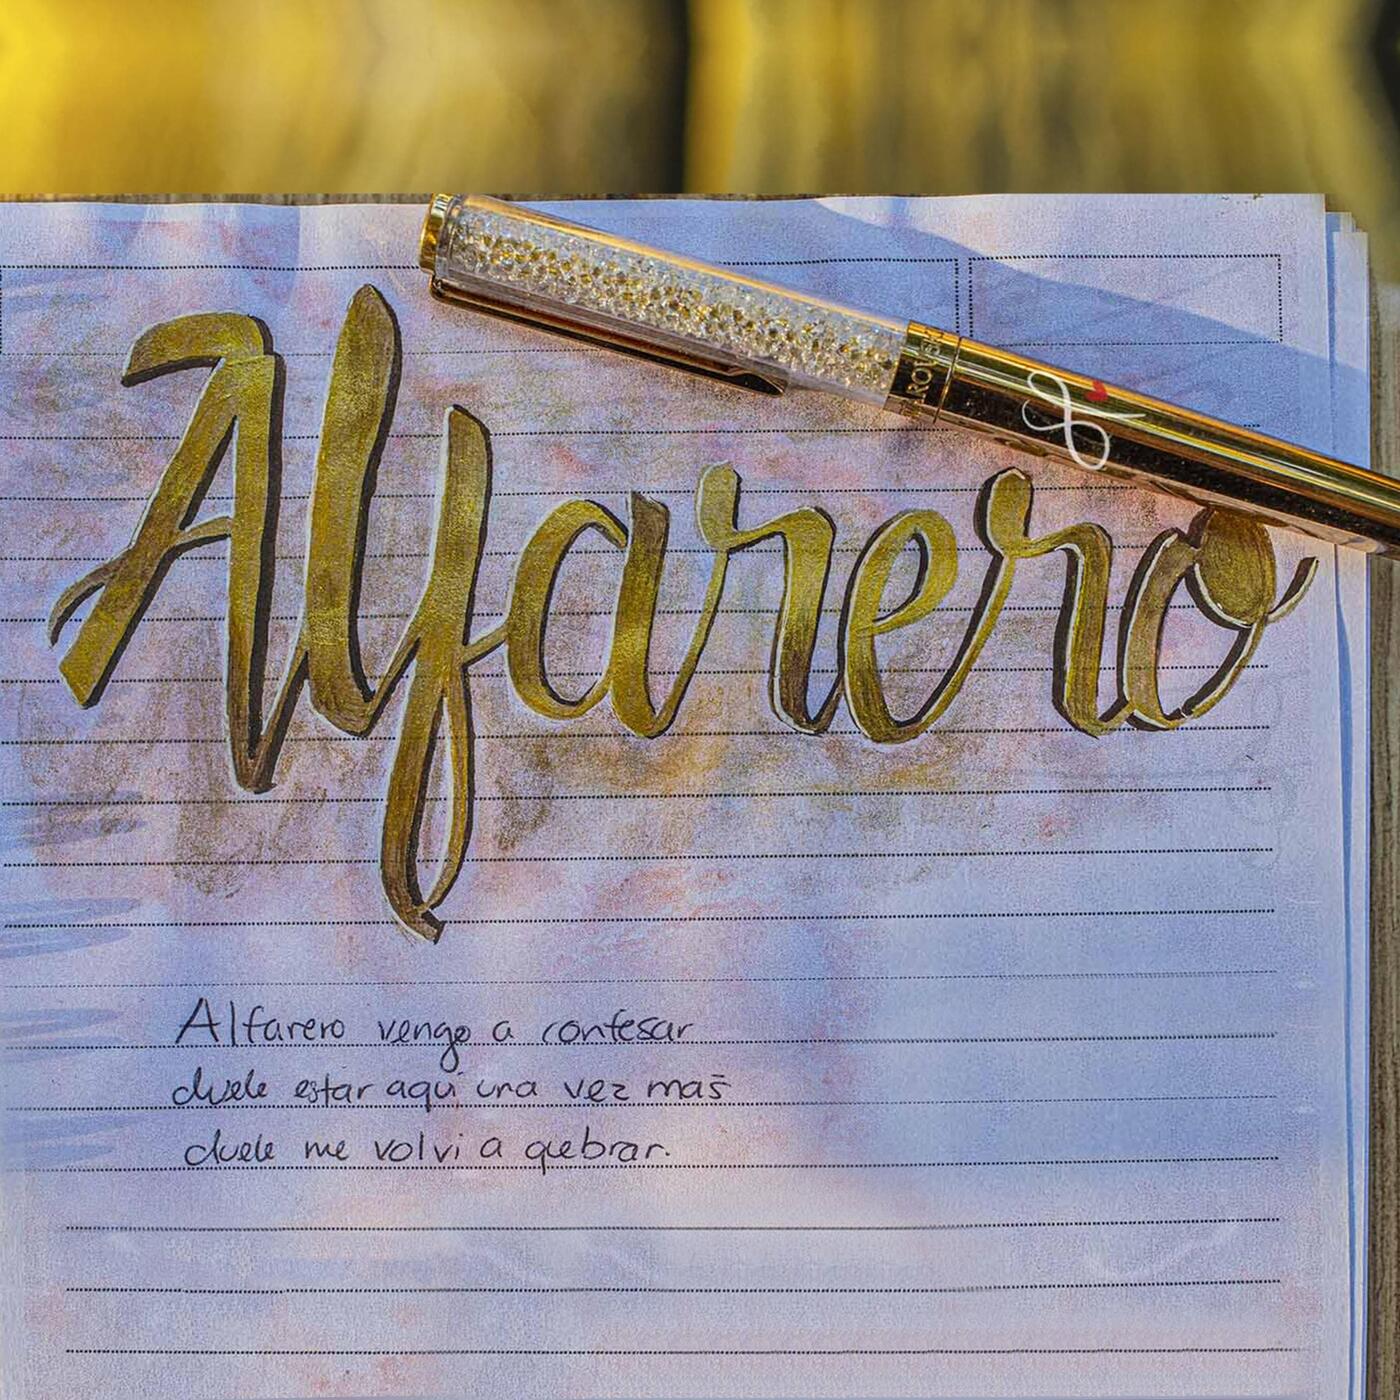 Alfarero
Alfarero vengo a confesar
duele estar aqui una vez mas
duele me volvi a quebrar.